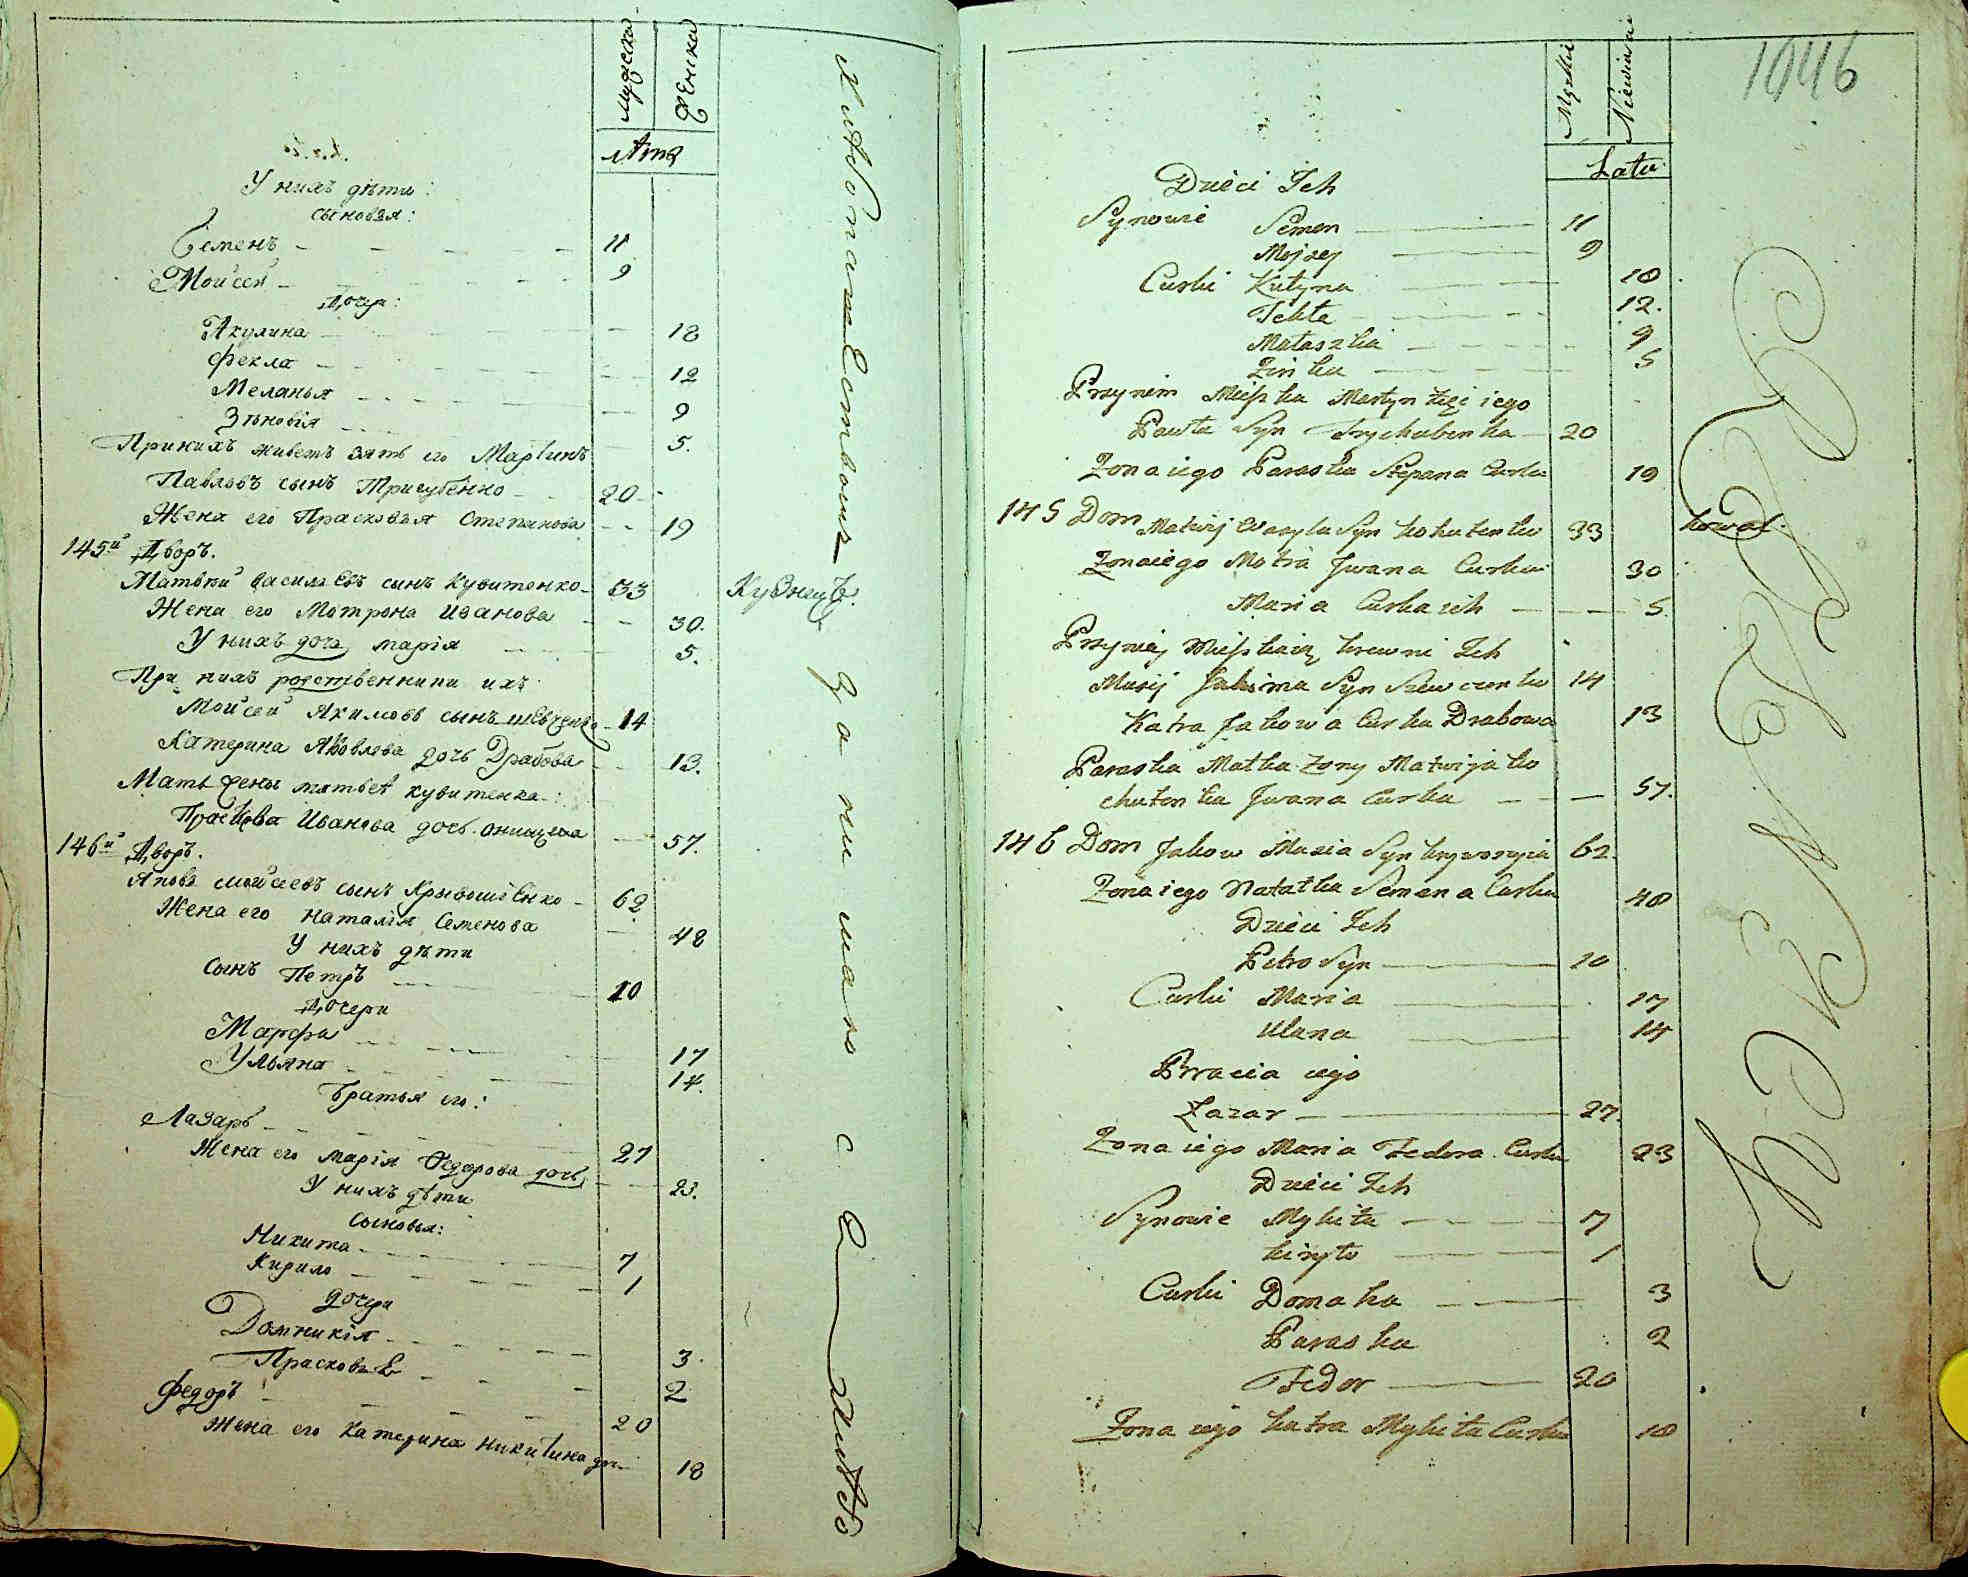 Мужеска
Женска
Лѣта
У нихъ дѣти:
сыновья:
Семенъ 11
Мойсей 9
Дочери:
Акулина 18
Фекла 12
Меланья 9
Зѣновія 5.
При нихъ живетъ зять его Мартинъ
Павловъ сынъ Тригубенко 20
Жена его Прасковья Степанова 19
145й Дворъ.
Матвій Васильевъ сынъ Кухтенко 33 Кузнецъ.
Жена его Мотрона Иванова 30.
У нихъ дочь Марія 5.
При нихъ родственники ихъ
Мойсей Акимовъ сынъ Шевченко 14
Катерина Яковлева дочь Драбова 13.
Мать жены Матвея
Иванова дочь 57.
146й Дворъ.
Яковъ Мойсеевъ сынъ 62
Жена его Наталія Семенова 48
У нихъ дѣти
Сынъ Петръ 10
Дочери
Марфа 17
Ульяна 14.
Братья его:
Лазарь 27
Жена его Марія Федорова дочь 23.
У нихъ дѣти
Сыновья:
Никита 7
Кирило 1
Дочери
Домникія 3.
Прасковья 2
Федоръ 20
Жена его Катерина Никитина доч. 18
1046
Męzkie
Niewiescie
Latu
Dzieci Ich
Synowie Semen 11
Mojsey 9
Curki Kulyna 18
Tekla 12.
Małaszka 9
Zinka 5
Przy nim Mieszka Martyn Zięć iego
Pawła Syn Tryhubenko 20
Zona iego Paraska Stepana Curka 19
145 Dom Matwij Wasyla Syn 33 kowal.
Zona iego Motra Jwana Curka 30
Maria Curka ich 5.
Przy niey Mieszkaią krewni Ich
Musij Jakima Syn Szewczenko 14
Katra Jakowa Curka Drabowa 13
Paraska Matka Zony Matwija Ko
chutenka Jwana Curka 57.
146 Dom Jakow Musia Syn 62.
Zona iego Natałka Semena Curka 48
Dzieci Ich
Petro Syn 10
Curki Maria 17
Ulana 14
Bracia iego
Łazar 27.
Zona iego Maria Fedora Curka 23
Dzieci Ich
Synowie Mykita 7
Kiryło 1
Curki Domaha 3
Paraska 2
Fedor 20
Zona iego Katra Mykita Curka 18